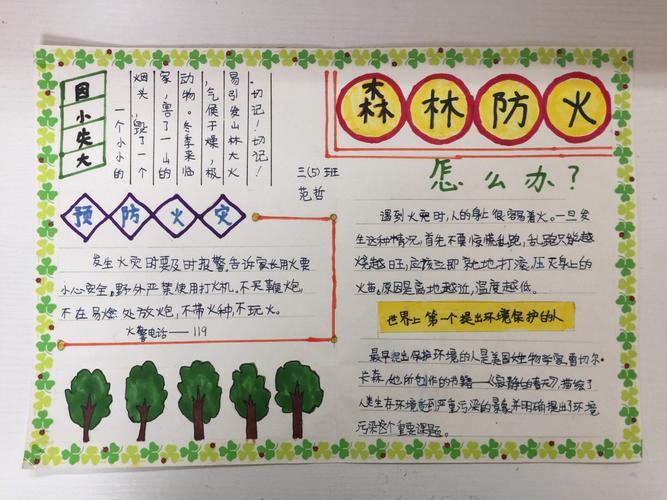 森林防火
因小失大
一个小小的
烟头,毁了一个
家,害了一山的
动物。冬季来临
,气候干燥,极
易引发山林大火
。切记!切记!
三(5)班
范哲
预防火灾
发生火灾时要及时报警,告诉家长用火要
小心安全。野外严禁使用打火机,不鞭炮
不在易燃处放炮,不带火种,不玩火。
火警电话——119
怎么办?
遇到火灾时,人的身上很容易着火。一旦发
生这种情况,首先不要惊慌乱跑,乱跑只能越
烧越旺,应该立即就地打滚,压灭身上的
火苗。原因是离地越近,温度越低。
世界上第一个提出环境保护的人
最早提出保护环境的人是美国女生物学家雷切尔·
卡森,他所创作的书籍——《寂静的春天》,描绘了
人类生在环境受到严重污染的景象,并明确提出了环境
污染这个重要课题。